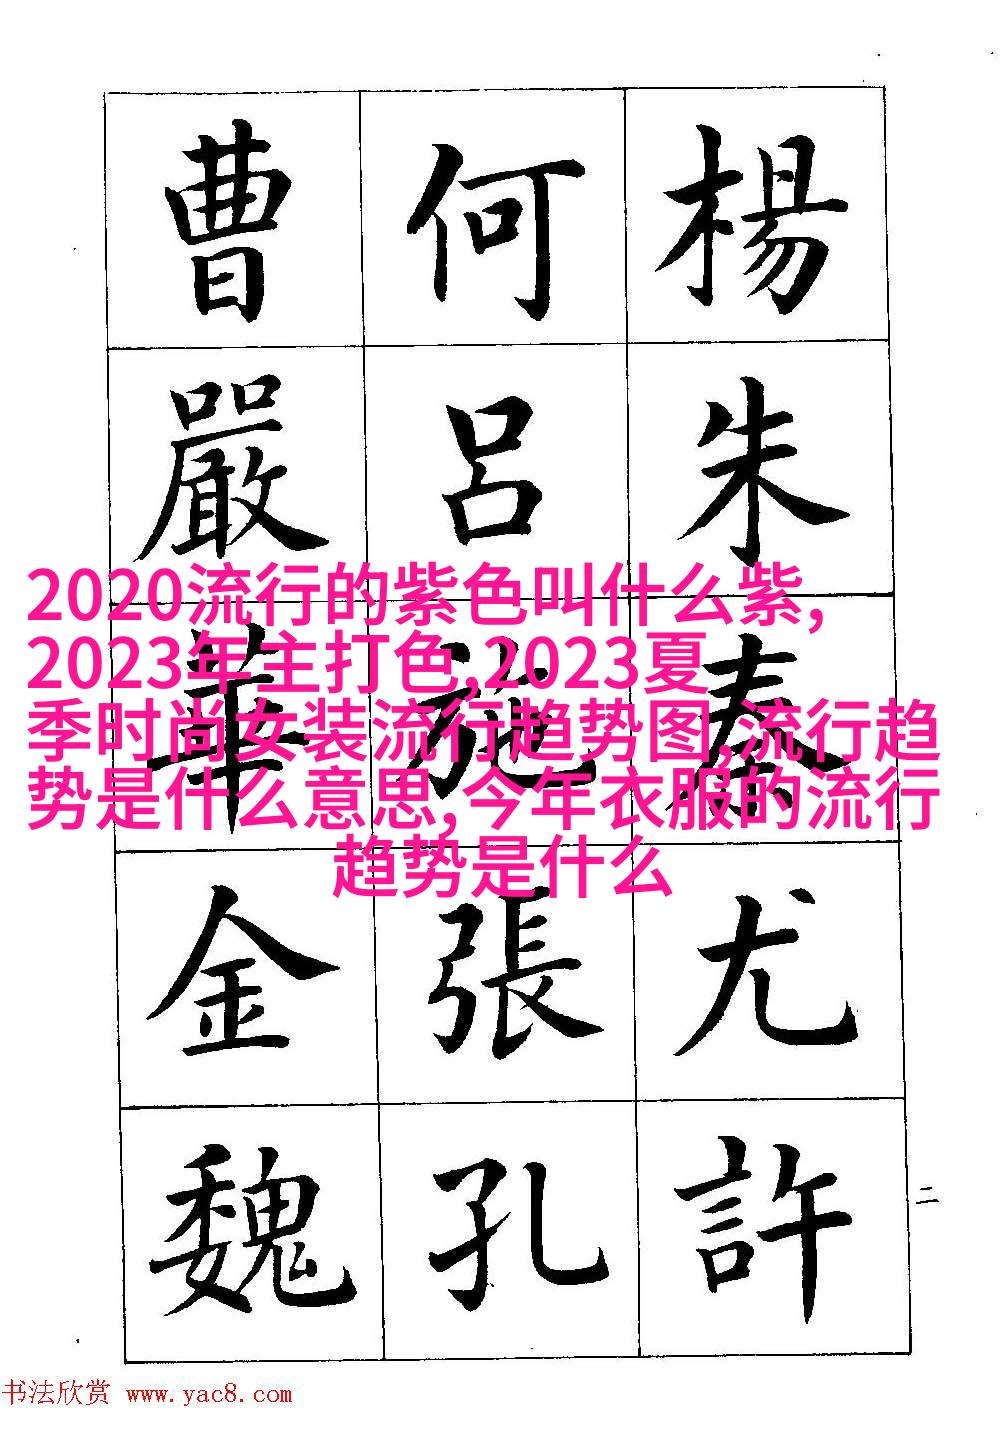 曹 何 楊
嚴 呂 朱
2020流行的紫色叫什么紫,
2023年主打色,2023夏
季时尚女装流行趋势图,流行趋
势是什么意思,今年衣服的流行
趋势是什么
華 施 秦
金 張 尤
魏 孔 許
二
书法欣赏 www.yac8.com